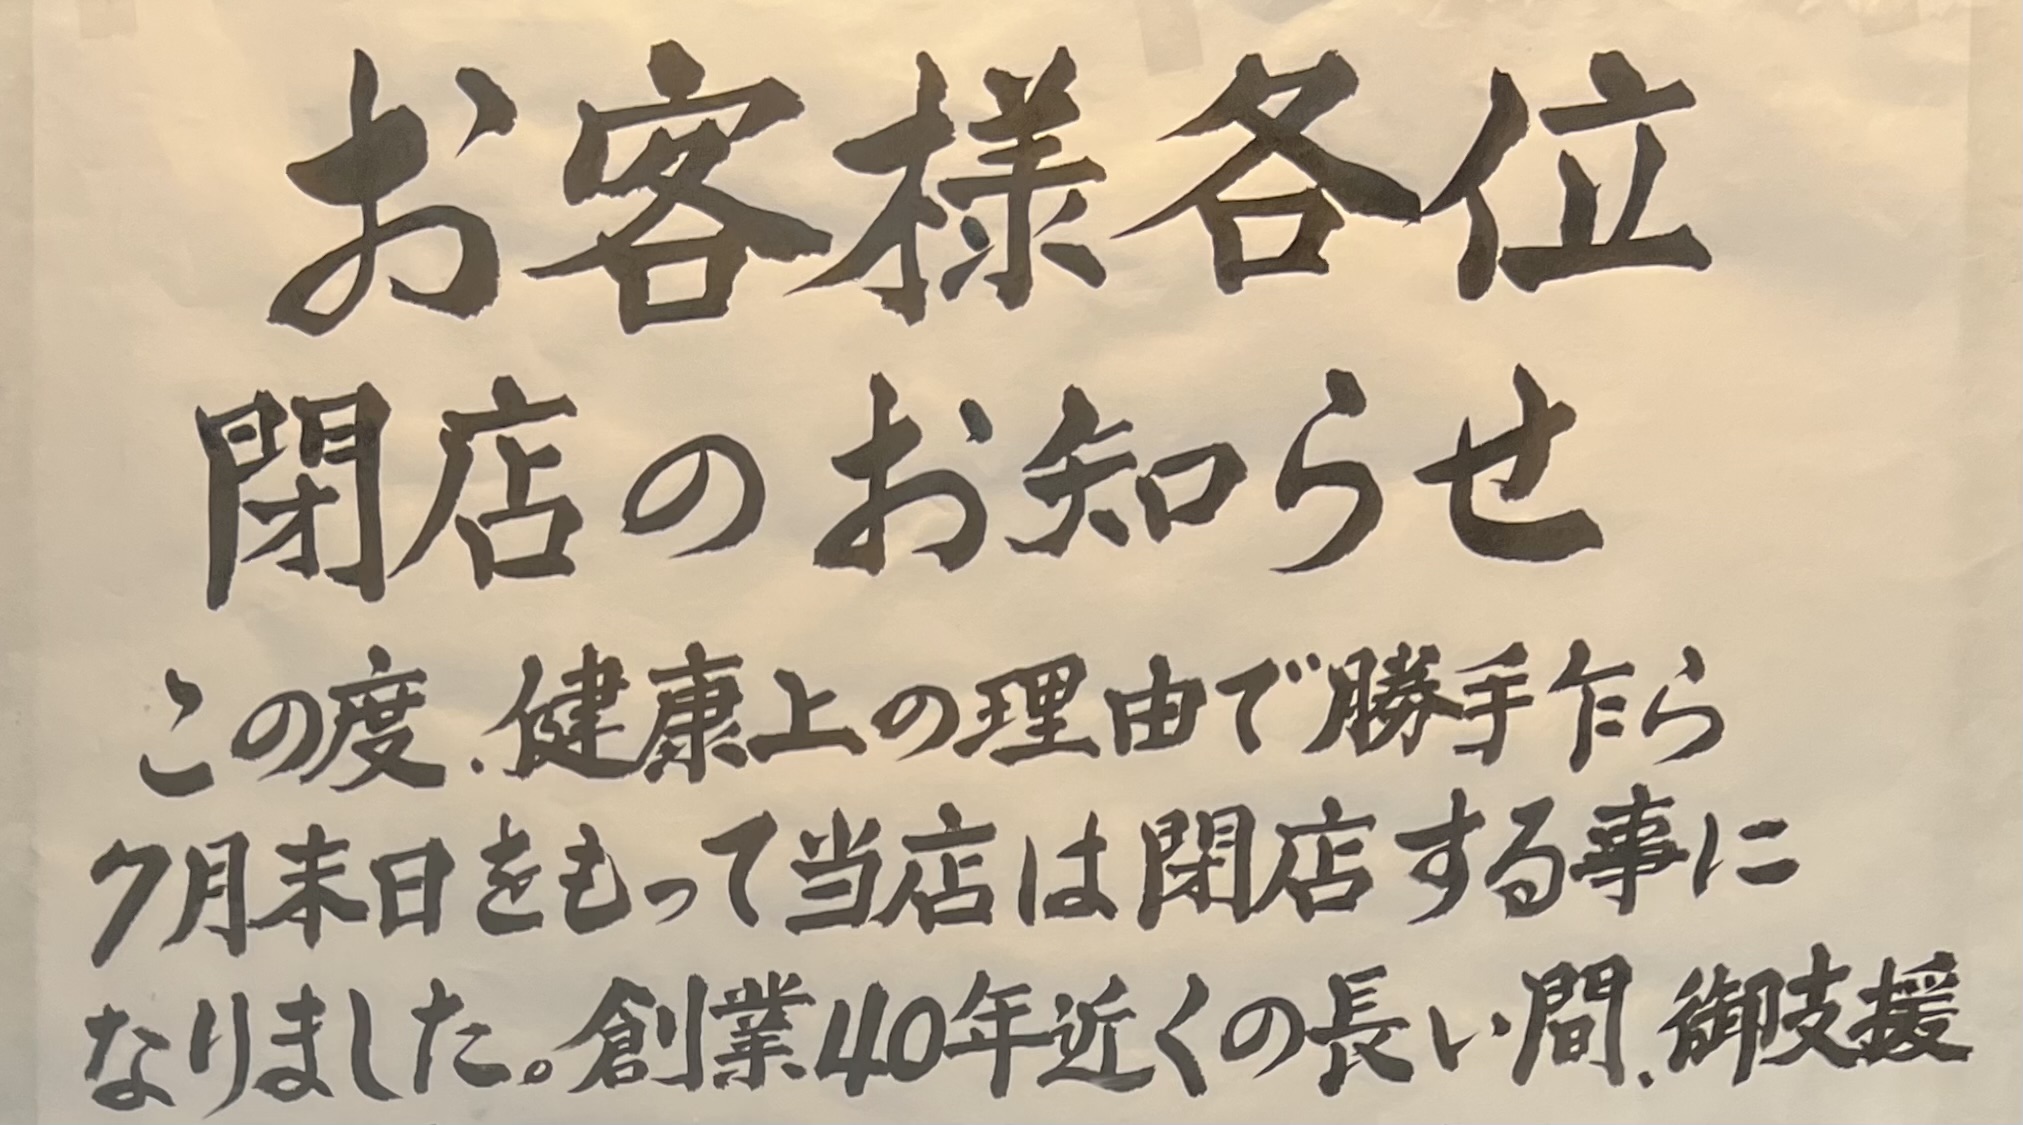 お客様各位
閉店のお知らせ
この度、健康上の理由で勝手乍ら
7月末日をもって当店は閉店する事に
なりました。創業40年近くの長い間、御支援